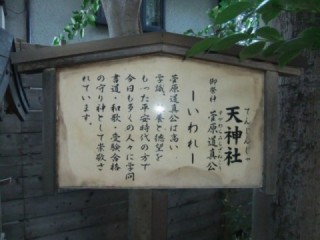 てんじんじゃ
天神社
御祭神 菅原道真公
すがわらみちざねこう
ーいわれー
菅原道真公は高い
学識、教養と徳望を
もった平安時代の方で
今日も多くの人々に学問
書道・和歌・受験合格
の守り神として崇敬さ
れています。